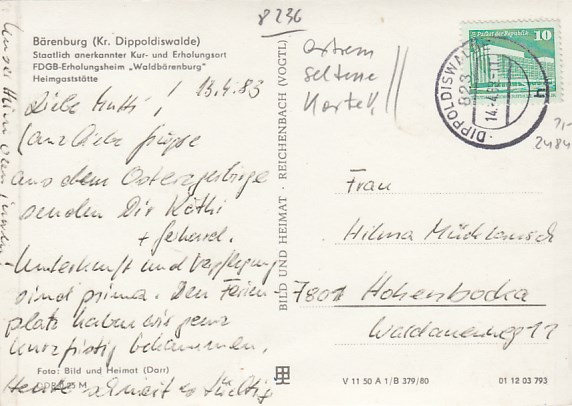 8236
Bärenburg (Kr. Dippoldiswalde)
Staatlich anerkannter Kur- und Erholungsort
FDGB-Erholungsheim „Waldbärenburg"
Heimgaststätte
13.4.83
Liebe Mutti!
Ganz liebe Grüße
aus dem Osterzgebirge
senden Dir Käthi
+ Gerhard.
Unterkunft und Verpflegung
sind prima. Den Ferien
platz haben wir ganz
kurzfristig bekommen.
Heute schneit es tüchtig
Foto: Bild und Heimat (Darr)
DDR 0,25 M
BILD UND HEIMAT · REICHENBACH (VOGTL)
extrem
seltene
Karte!!
Palast der Republik
10
DIPPOLDISWALDE
823
14.4.83
h
2484
Frau
Hilma
7801 Hohenbocka
Waldauerweg 11
V 11 50 A 1/B 379/80
01 12 03 793